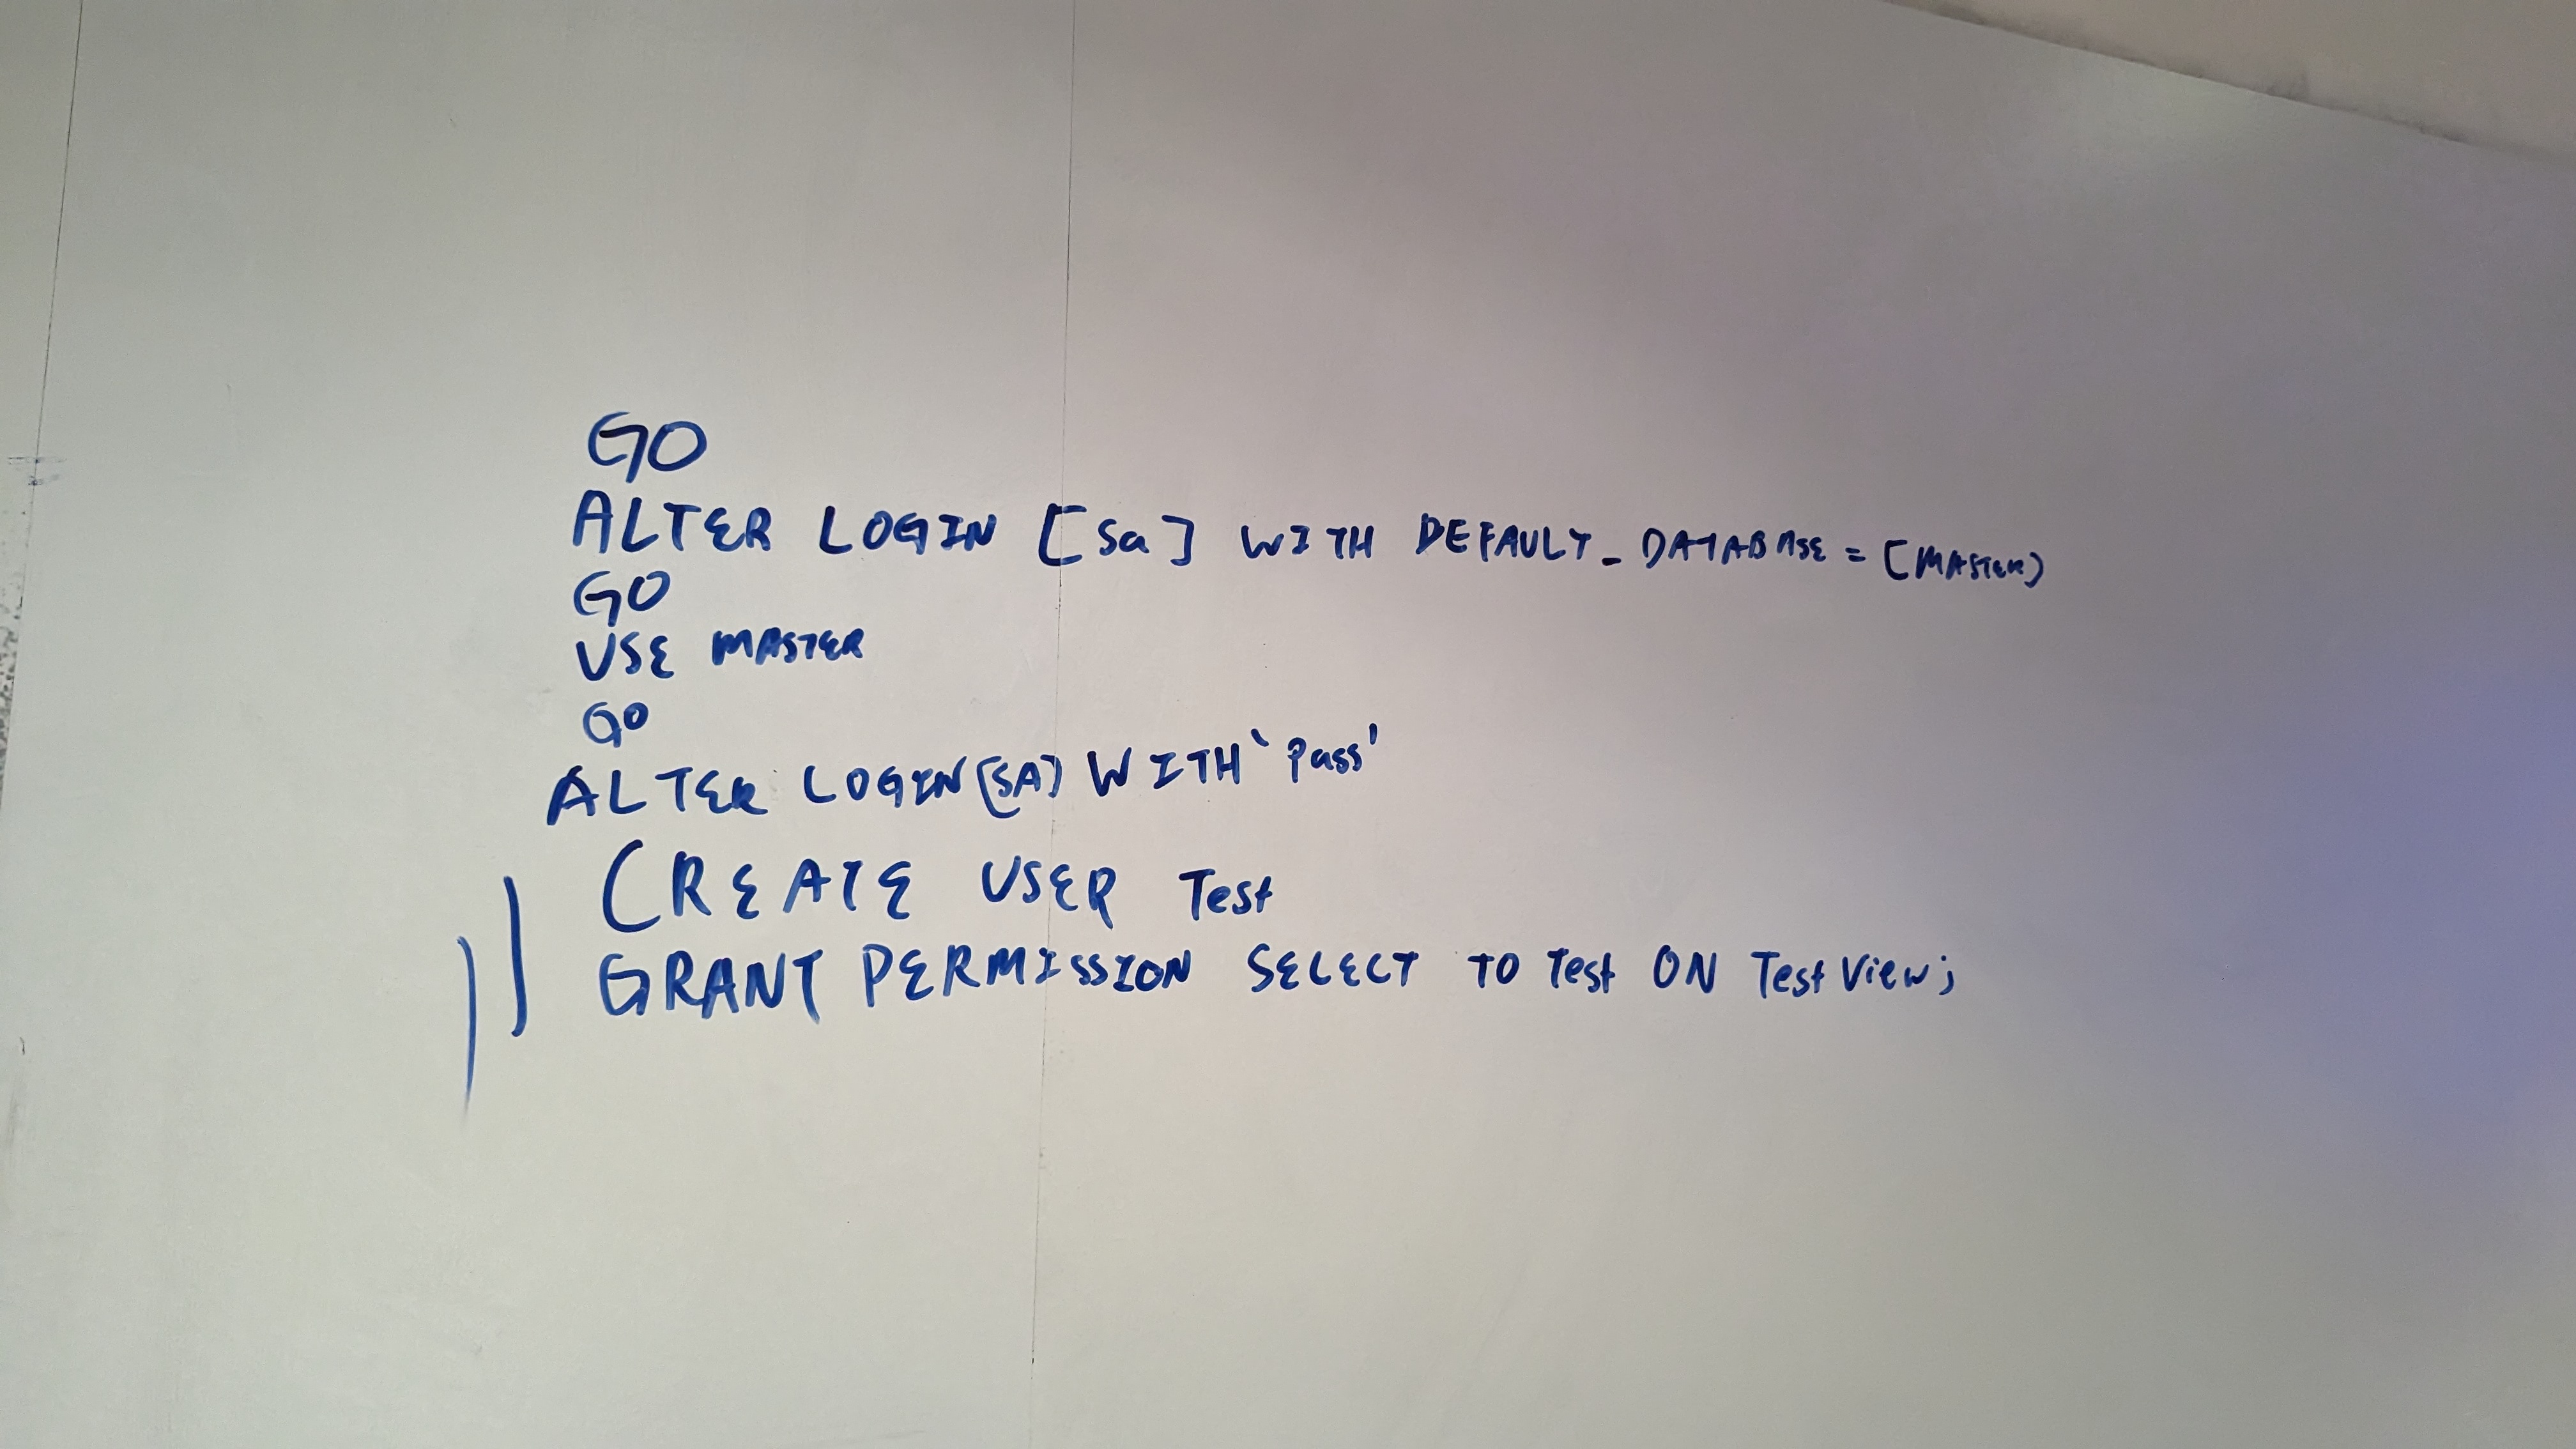 GO
ALTER LOGIN [sa] WITH DEFAULT_DATABASE = [MASTER]
GO
USE MASTER
GO
ALTER LOGIN [SA] WITH 'Pass'
CREATE USER Test
GRANT PERMISSION SELECT TO Test ON TestView;